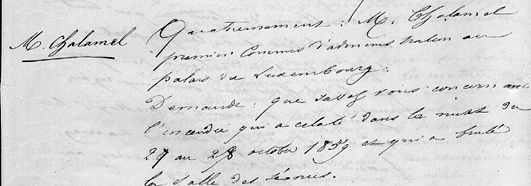 M. Chalamel
Quatrièmement : M. Chalamel
premier Commis d'administration au
palais du Luxembourg.
Demande : que savez vous concernant
l'incendie qui a éclaté dans la nuit du
27 au 28 octobre 1859 et qui a brulé
la salle des séances.